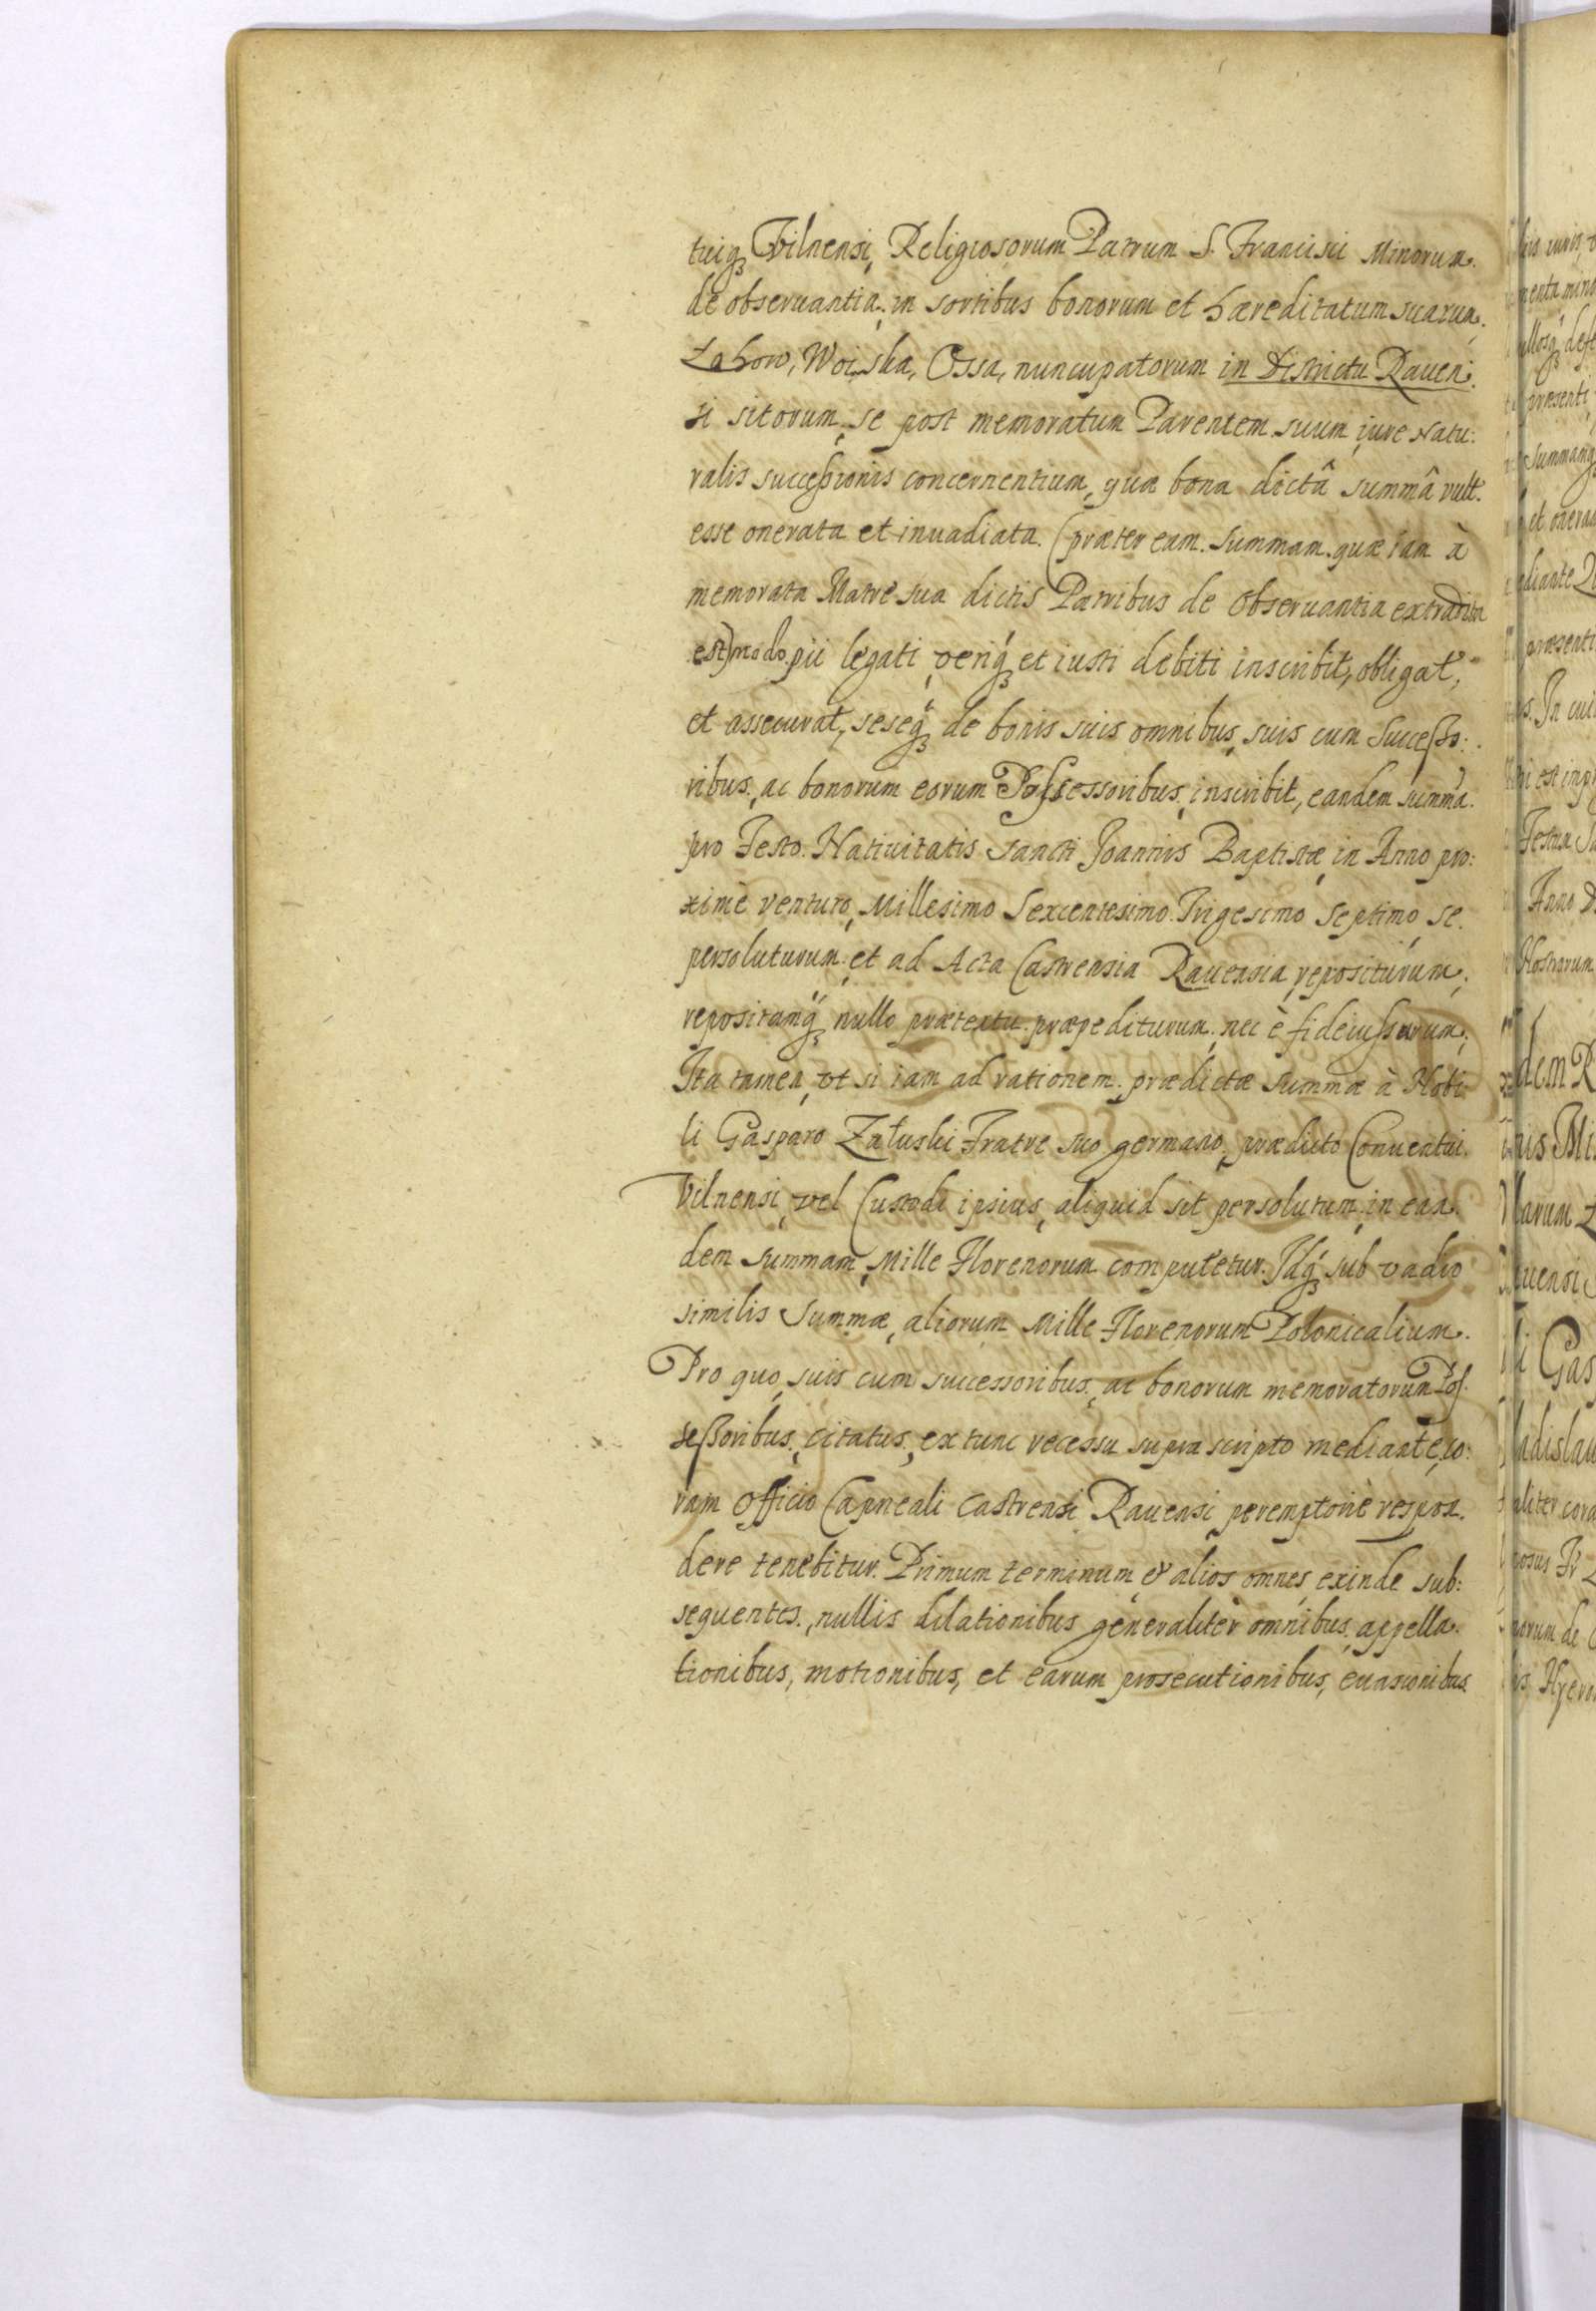 tuiq₃ Vilnensi, Religiosorum Patrum S. Francisci Minorum.
de obseruantia; in sortibus bonorum et hæreditatum suarum.
Zahow, Woiska, Ossa, nuncupatorum in Districtu Rauen:
si sitorum, se post memoratum Parentem suum iure Natu:
ralis successionis concernentium, quæ bona dictâ summâ vult
esse onerata et inuadiata. (præter eam summam quæ iam à
memorata Matre sua dictis Patribus de Obseruantia extradita
est) modo pii legati, veriq₃ et iusti debiti inscribit, obligat,
et assecurat, seseq₃ de bonis suis omnibus, suis cum Successo:
ribus, ac bonorum eorum Possessoribus, inscribit, eandem summã
pro Festo Natiuitatis Sancti Joannis Baptistæ, in Anno pro:
ximè venturo, Millesimo Sexcentesimo Trigesimo Septimo, se
persoluturum, et ad Acta Castrensia Rauensia, repositurum;
repositamq₃ nullo prætextu præpediturum, nec è fideiussurum;
Ita tamen, vt si iam ad rationem prædictæ Summæ à Nobi:
li Gasparo Załuski Fratre suo germano, prædicto Conuentui
Vilnensi, vel Custodi ipsius, aliquid sit persolutum, in ean:
dem summam, Mille Florenorum computetur. Idq₃ sub vadio
similis Summæ, aliorum Mille Florenorum Polonicalium.
Pro quo, suis cum successoribus, ac bonorum memoratorum Pos:
sessoribus, citatus, ex tunc recessu supra scripto mediante, co:
ram Officio Capneali Castrensi Rauensi peremptoriè respon:
dere tenebitur. Primum terminum, & alios omnes, exinde sub:
sequentes, nullis dilationibus generaliter omnibus, appella:
tionibus, motionibus, et earum prosecutionibus, euasionibus